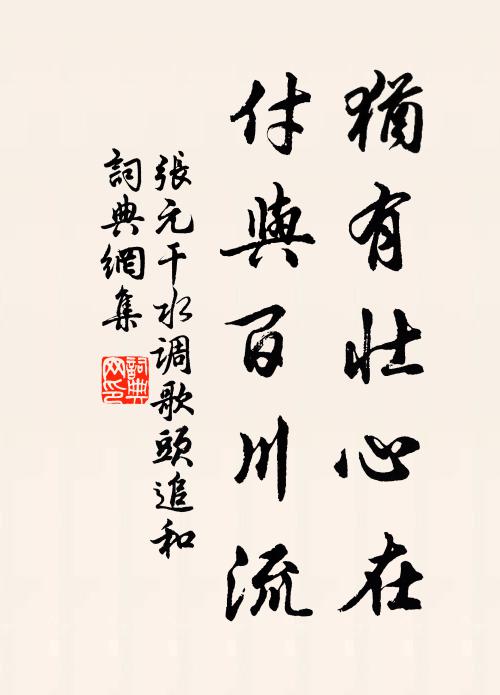 猶有壯心在
付與百川流
張元干水调歌頭追和
詞典網集
詞典網印